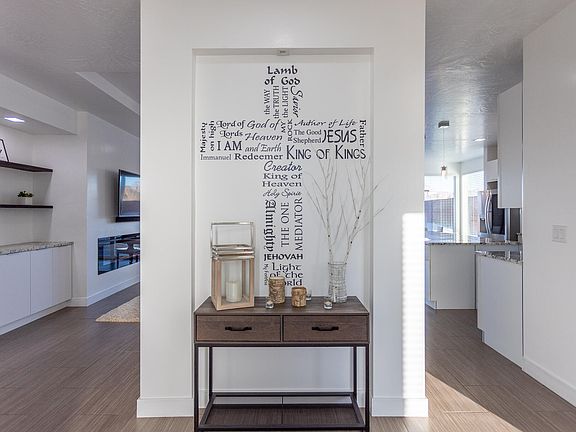 Lamb
of God
the WAY
the TRUTH
the LIGHT
Savior
MY
ROCK
Majesty
on high
Lord of
Lords
God of
Heaven
Author of Life
I AM
and Earth
The Good
Shepherd
JESUS
Father
Immanuel
Redeemer
KING OF KINGS
Creator
King of
Heaven
Holy Spirit
Almighty
THE ONE
MEDIATOR
JEHOVAH
Light
of the
World